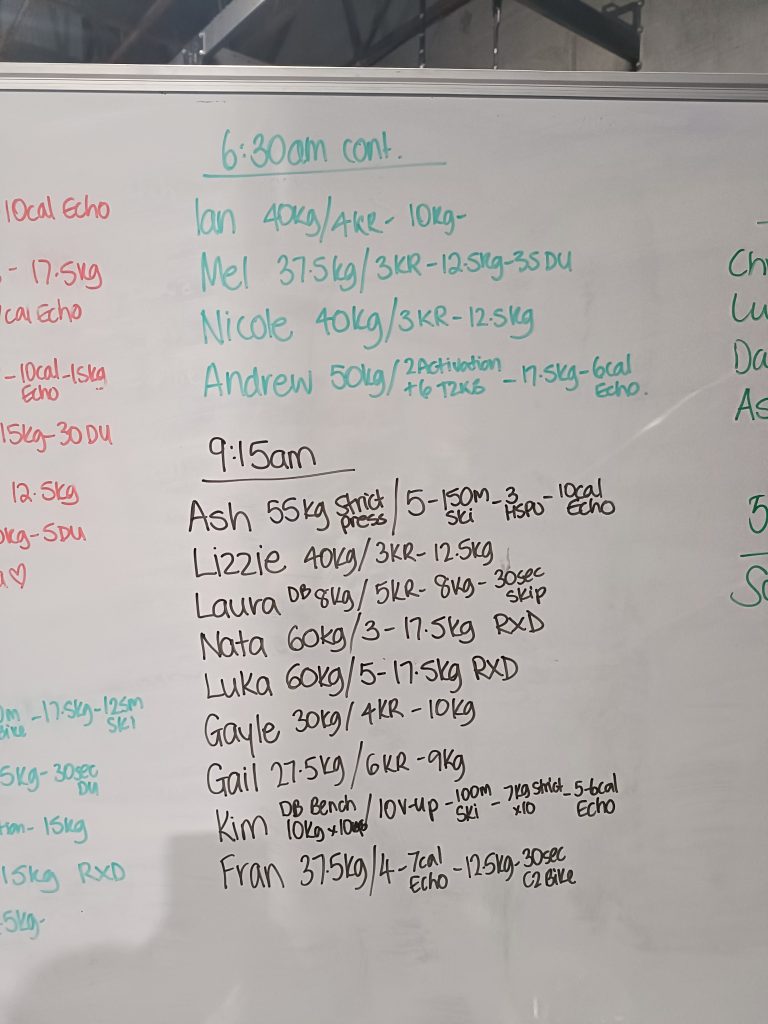 6:30am cont.
Ian 40kg/4KR- 10kg-
Mel 37.5kg/3KR-12.5kg-35DU
Nicole 40kg/3KR-12.5kg
Andrew 50kg/2Activation +6 T2KS -17.5kg-6cal Echo.
9:15am
Ash 55kg Strict press/5-150m Ski-3 HSPU-10cal Echo
Lizzie 40kg/3KR-12.5kg
Laura DB 8kg/5KR-8kg-30sec Skip
Nata 60kg/3-17.5kg RXD
Luka 60kg/5-17.5kg RXD
Gayle 30kg/4KR-10kg
Gail 27.5kg/6KR-9kg
Kim DB Bench 10kg x10 /10V-up-100m Ski-7kg Strict x10-5-6cal Echo
Fran 37.5kg/4-7cal Echo-12.5kg-30sec C2 Bike
10cal Echo
- 17.5kg
cal Echo
-10cal Echo-15kg
15kg-30DU
12.5kg
kg-5DU
-17.5kg-125m Ski
5kg-30sec DU
15kg
15kg RXD
5kg-
Ch
Lu
Da
As
5